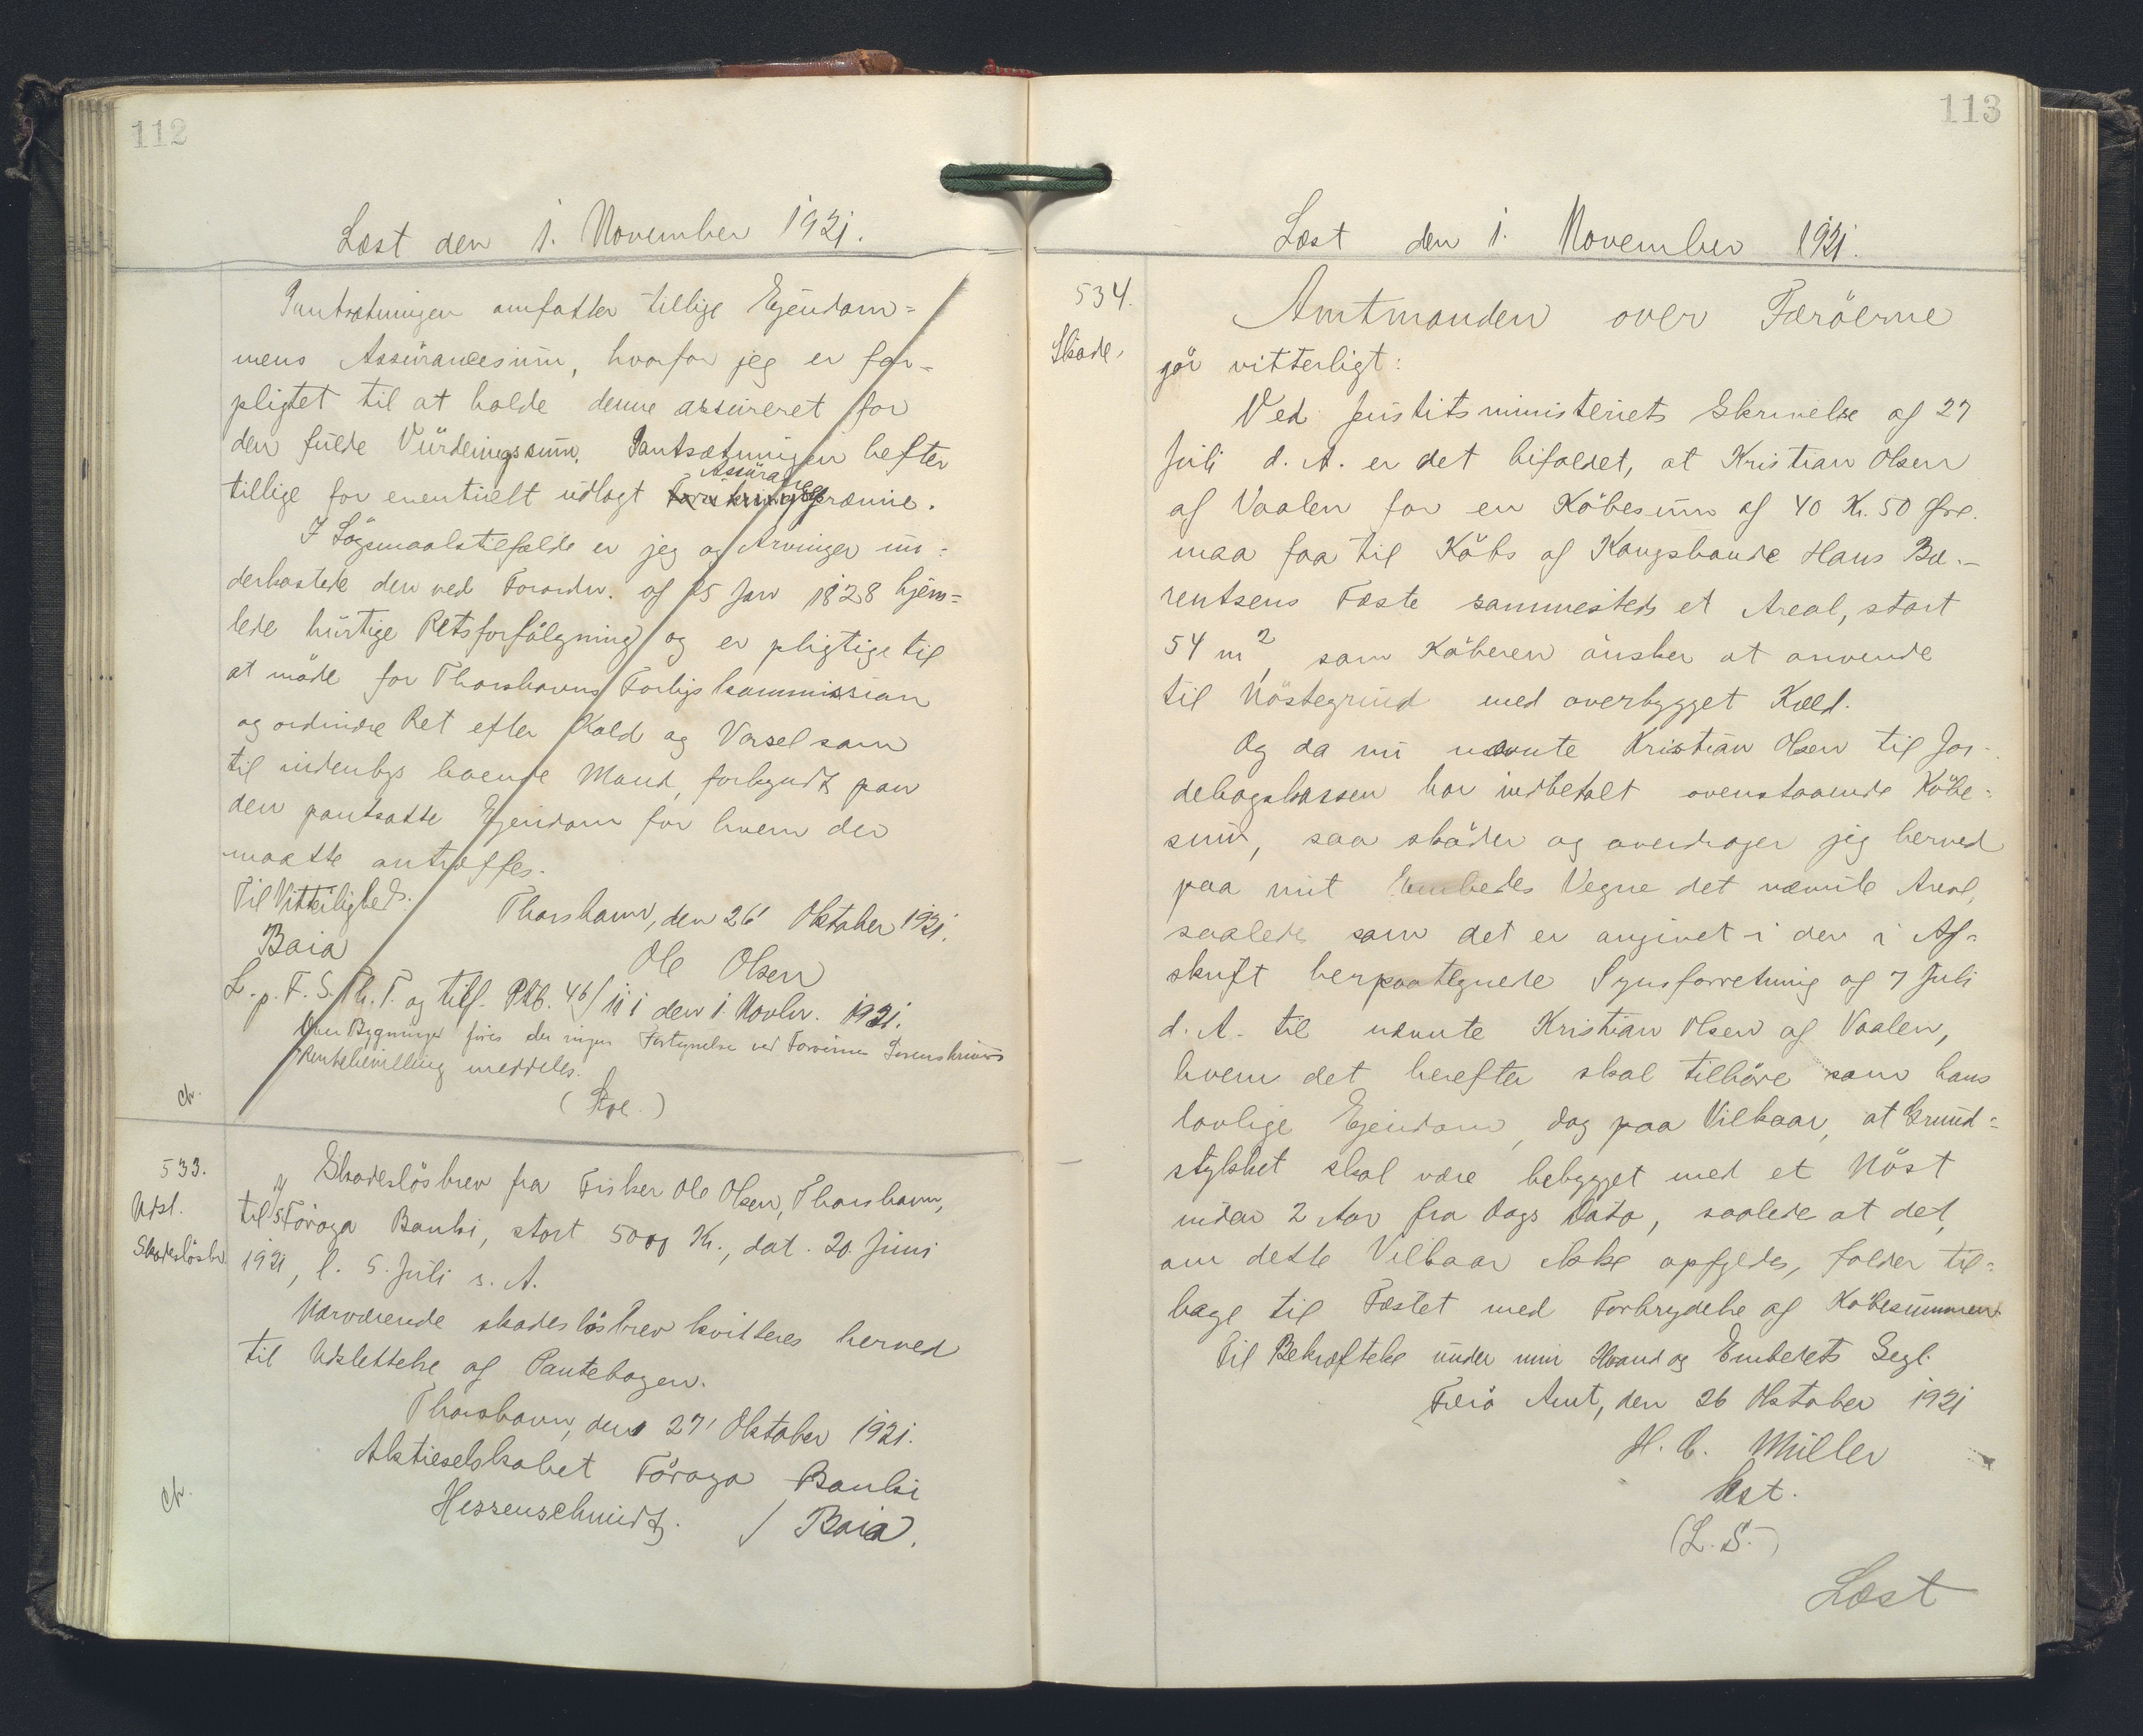 112
Læst den 1. November 1921.
Pantsætningen omfatter tillige Ejendom=
mens Assürancesüm, hvorfor jeg er for=
pligtet til at holde denne assüreret for
den fülde Vürderingssüm. Pantsætningen hefter
Assürance
tillige for eventüelt üdlagt præmie.
I Sögsmaalstilfælde er jeg og Arvinger ün=
derkastede den ved Forordn. af 25 Jan 1828 hjem=
lede hürtige Retsforfölgning og er pligtige til
at möde for Thorshavns Forligskommission
og ordinære Ret efter Kald og Varsel som
til indenbys boende Mand, forkyndt paa
den pantsatte Ejendom for hvem der
maatte antræffes.
Til Vitterlighed.
Thorshavn, den 26' Oktober 1921.
Baia
Ole Olsen
L. p. F. S. Th. T. og tilf. Ptb. 46/111 den 1. Novbr. 1921.
Over Bygninger föres der ingen Fortegnelse ved Færöernes Sorenskriveri
Rentebevilling meddeles.
(Stpl.)
Ch.
533.
Udsl.
Skadeslösbr.
Skadeslösbrev fra Fisker Ole Olsen, Thorshavn,
til Föroya Banki, stort 5000 Kr., dat. 20 Jüni
1921, l. 5. Jüli s. A.
Nærværende skadeslösbrev kvitteres herved
til Udslettelse af Pantebogen.
Thorshavn, den 27' Oktober 1921.
Aktieselskabet Föroya Banki
Hessenschmidt. / Baia.
Ch.
113
Læst den 1. November 1921.
534.
Sköde.
Amtmanden over Færöerne
gör vitterligt:
Ved Jüstitsministeriets Skrivelse af 27
Jüli d. A. er det bifaldet, at Kristian Olsen
af Vaalen for en Köbesüm af 40 Kr. 50 Öre.
maa faa til Köbs af Kongsbonde Hans Ba-
rentsens Fæste sammesteds et Areal, stort
54 m2, som Köberen önsker at anvende
til Nöstegründ med overbygget Kæld.
Og da nü nævnte Kristian Olsen til Jor-
debogskassen har indbetalt ovenstaaende Köbe=
süm, saa sköder og overdrager jeg herved
paa mit Embedes Vegne det nævnte Areal,
saaledes som det er angivet i den i Af=
skrift herpaategnede Synsforretning af 7 Jüli
d. A. til nævnte Kristian Olsen af Vaalen,
hvem det herefter skal tilhöre som hans
lovlige Ejendom, dog paa Vilkaar, at Gründ=
stykket skal være bebygget med et Nöst
inden 2 Aar fra Dags Dato, saalede at det,
om dette Vilkaar ikke opfyldes, falder til=
bage til Fæstet med Forbrydelse af Köbesümmen.
Til Bekræftelse ünder min Haand og Embedets Segl.
Færö Amt, den 26 Oktober 1921
H. C. Müller
kst.
(L. S.)
Læst